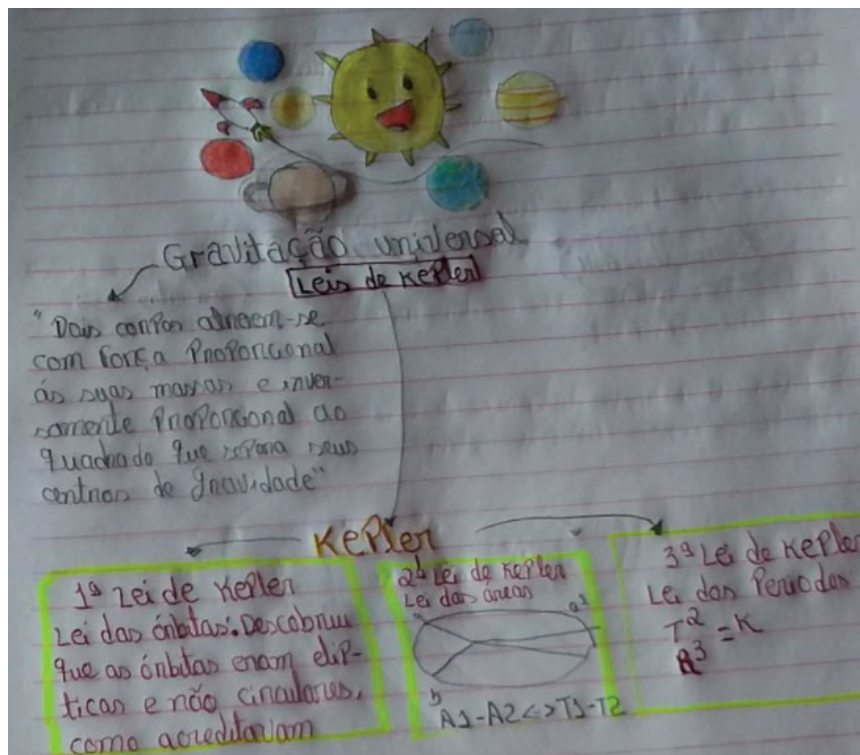 Gravitação universal
Leis de Kepler
"Dois corpos atraem-se
com força Proporcional
ás suas massas e inver-
samente Proporcional ao
quadrado que separa seus
centros de gravidade"
Kepler
1ª Lei de Kepler
Lei das órbitas. Descobriu
que as órbitas eram elip-
ticas e não circulares,
como acreditavam
2ª Lei de Kepler
Lei das áreas
A1-A2<>T1-T2
3ª Lei de Kepler
Lei dos Periodos
T² = K
R³